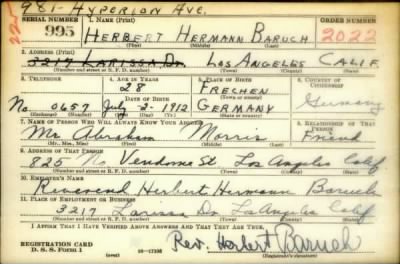 981- Hyperion Ave.
225
SERIAL NUMBER 1. NAME (Print) ORDER NUMBER
995 HERBERT HERMANN BARUCH 2022
(First) (Middle) (Last)
2. ADDRESS (Print)
3217 LARISSA DR. LOS ANGELES CALIF.
(Number and street or R. F. D. number) (Town) (County) (State)
3. TELEPHONE 4. AGE IN YEARS 5. PLACE OF BIRTH 6. COUNTRY OF CITIZENSHIP
28 FRECHEN
DATE OF BIRTH
No 0657 July 3- 1912 GERMANY Germany
(Exchange) (Number) (Mo.) (Day) (Yr.) (State or country)
7. NAME OF PERSON WHO WILL ALWAYS KNOW YOUR ADDRESS 8. RELATIONSHIP OF THAT PERSON
Mr. Abraham Morris Friend
(Mr., Mrs., Miss) (First) (Middle) (Last)
9. ADDRESS OF THAT PERSON
825 No Vendome St Los Angeles Calif
(Number and street or R. F. D. number) (Town) (County) (State)
10. EMPLOYER'S NAME
Reverend Herbert Hermann Baruch
11. PLACE OF EMPLOYMENT OR BUSINESS
3217 Larissa Dr Los Angeles Calif
(Number and street or R. F. D. number) (Town) (County) (State)
I AFFIRM THAT I HAVE VERIFIED ABOVE ANSWERS AND THAT THEY ARE TRUE.
REGISTRATION CARD
D. S. S. Form 1 16-17105
Rev. Herbert Baruch
(Registrant's signature)